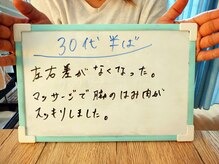 30代半ば
左右差がなくなった。
マッサージで脇のはみ肉が
スッキリしました。